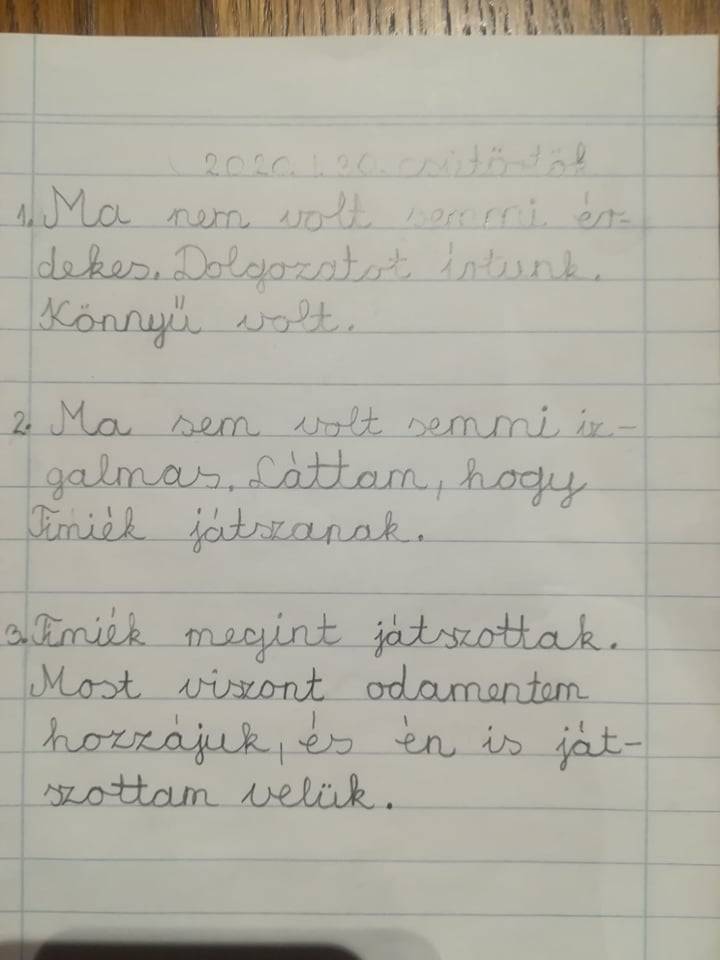 csütörtök
1. Ma nem volt semmi ér-
dekes. Dolgozatot írtunk.
Könnyű volt.
2. Ma sem volt semmi iz-
galmas. Láttam, hogy
Timiék játszanak.
3. Timiék megint játszottak.
Most viszont odamentem
hozzájuk, és én is ját-
szottam velük.